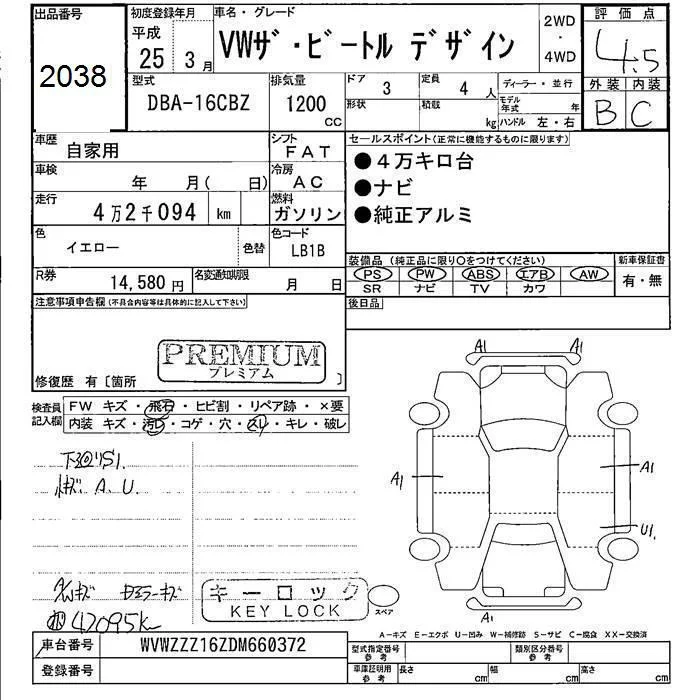 出品番号 初度登録年月 車名・グレード 2WD ・ 4WD 評価点
2038 平成 25 3月 VWザ・ビートル デザイン 4.5
型式 排気量 ドア 3 定員 4人 ディーラー・並行 外装 内装
DBA-16CBZ 1200 CC 形状 積載 kg モデル年式 年 ハンドル 左・右 B C
車歴 自家用 シフト FAT セールスポイント(正常に機能するものに限ります)
車検 年 月( 日) 冷房 AC ●4万キロ台
走行 4万2千094 km 燃料 ガソリン ●ナビ
●純正アルミ
色 イエロー 色替 色コード LB1B
装備品 (純正品に限り○をつけてください) 新車保証書
R券 14,580円 名変通知期限 月 日 PS PW ABS エアB AW 有・無
SR ナビ TV カワ
注意事項申告欄(不具合内容等は具体的に記入して下さい) 後日品
PREMIUM
プレミアム
修復歴 有〔箇所 〕
検査員記入欄 FW キズ・飛石・ヒビ割・リペア跡・×要
内装 キズ・汚レ・コゲ・穴・スレ・キレ・破レ
A1 A1
A1 A1
U1.
A1
A.U.
キーロック
KEY LOCK
スペア
42095k
A-キズ E-エクボ U-凹み W-補修跡 S-サビ C-腐食 XX-交換済
車台番号 WVWZZZ16ZDM660372 型式指定番号 参考 類別区分番号 参考
登録番号 車庫証明用 参考 長さ cm 幅 cm 高さ cm